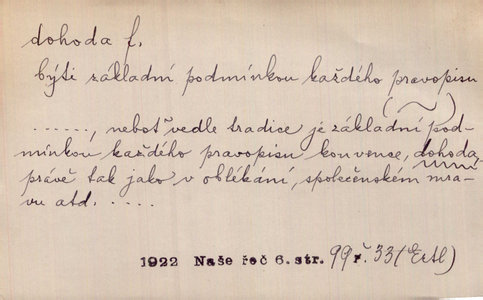 dohoda f.
býti základní podmínkou každého pravopisu
(~)
......, neboť vedle tradice je základní pod-
mínkou každého pravopisu konvence, dohoda,
právě tak jako v oblékání, společenském mra-
vu atd. .....
1922 Naše řeč 6. str. 99 ř. 33 (Ertl)